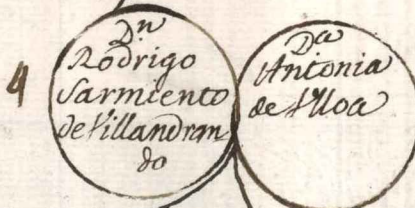 4
Dn
Rodrigo
Sarmiento
de Villandran
do
Da
Antonia
de Ulloa